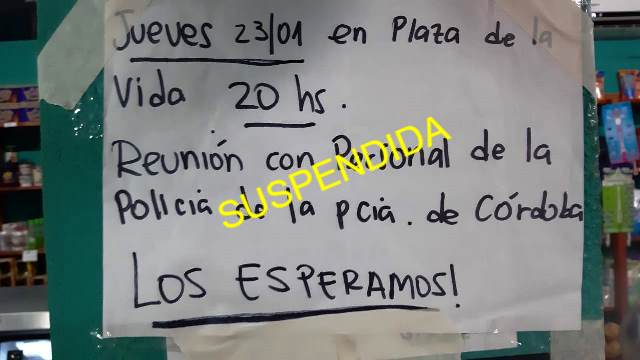 Jueves 23/01 en Plaza de la
Vida 20 hs.
Reunión con Personal de la
Policia de la pcia. de Córdoba
LOS ESPERAMOS!
SUSPENDIDA